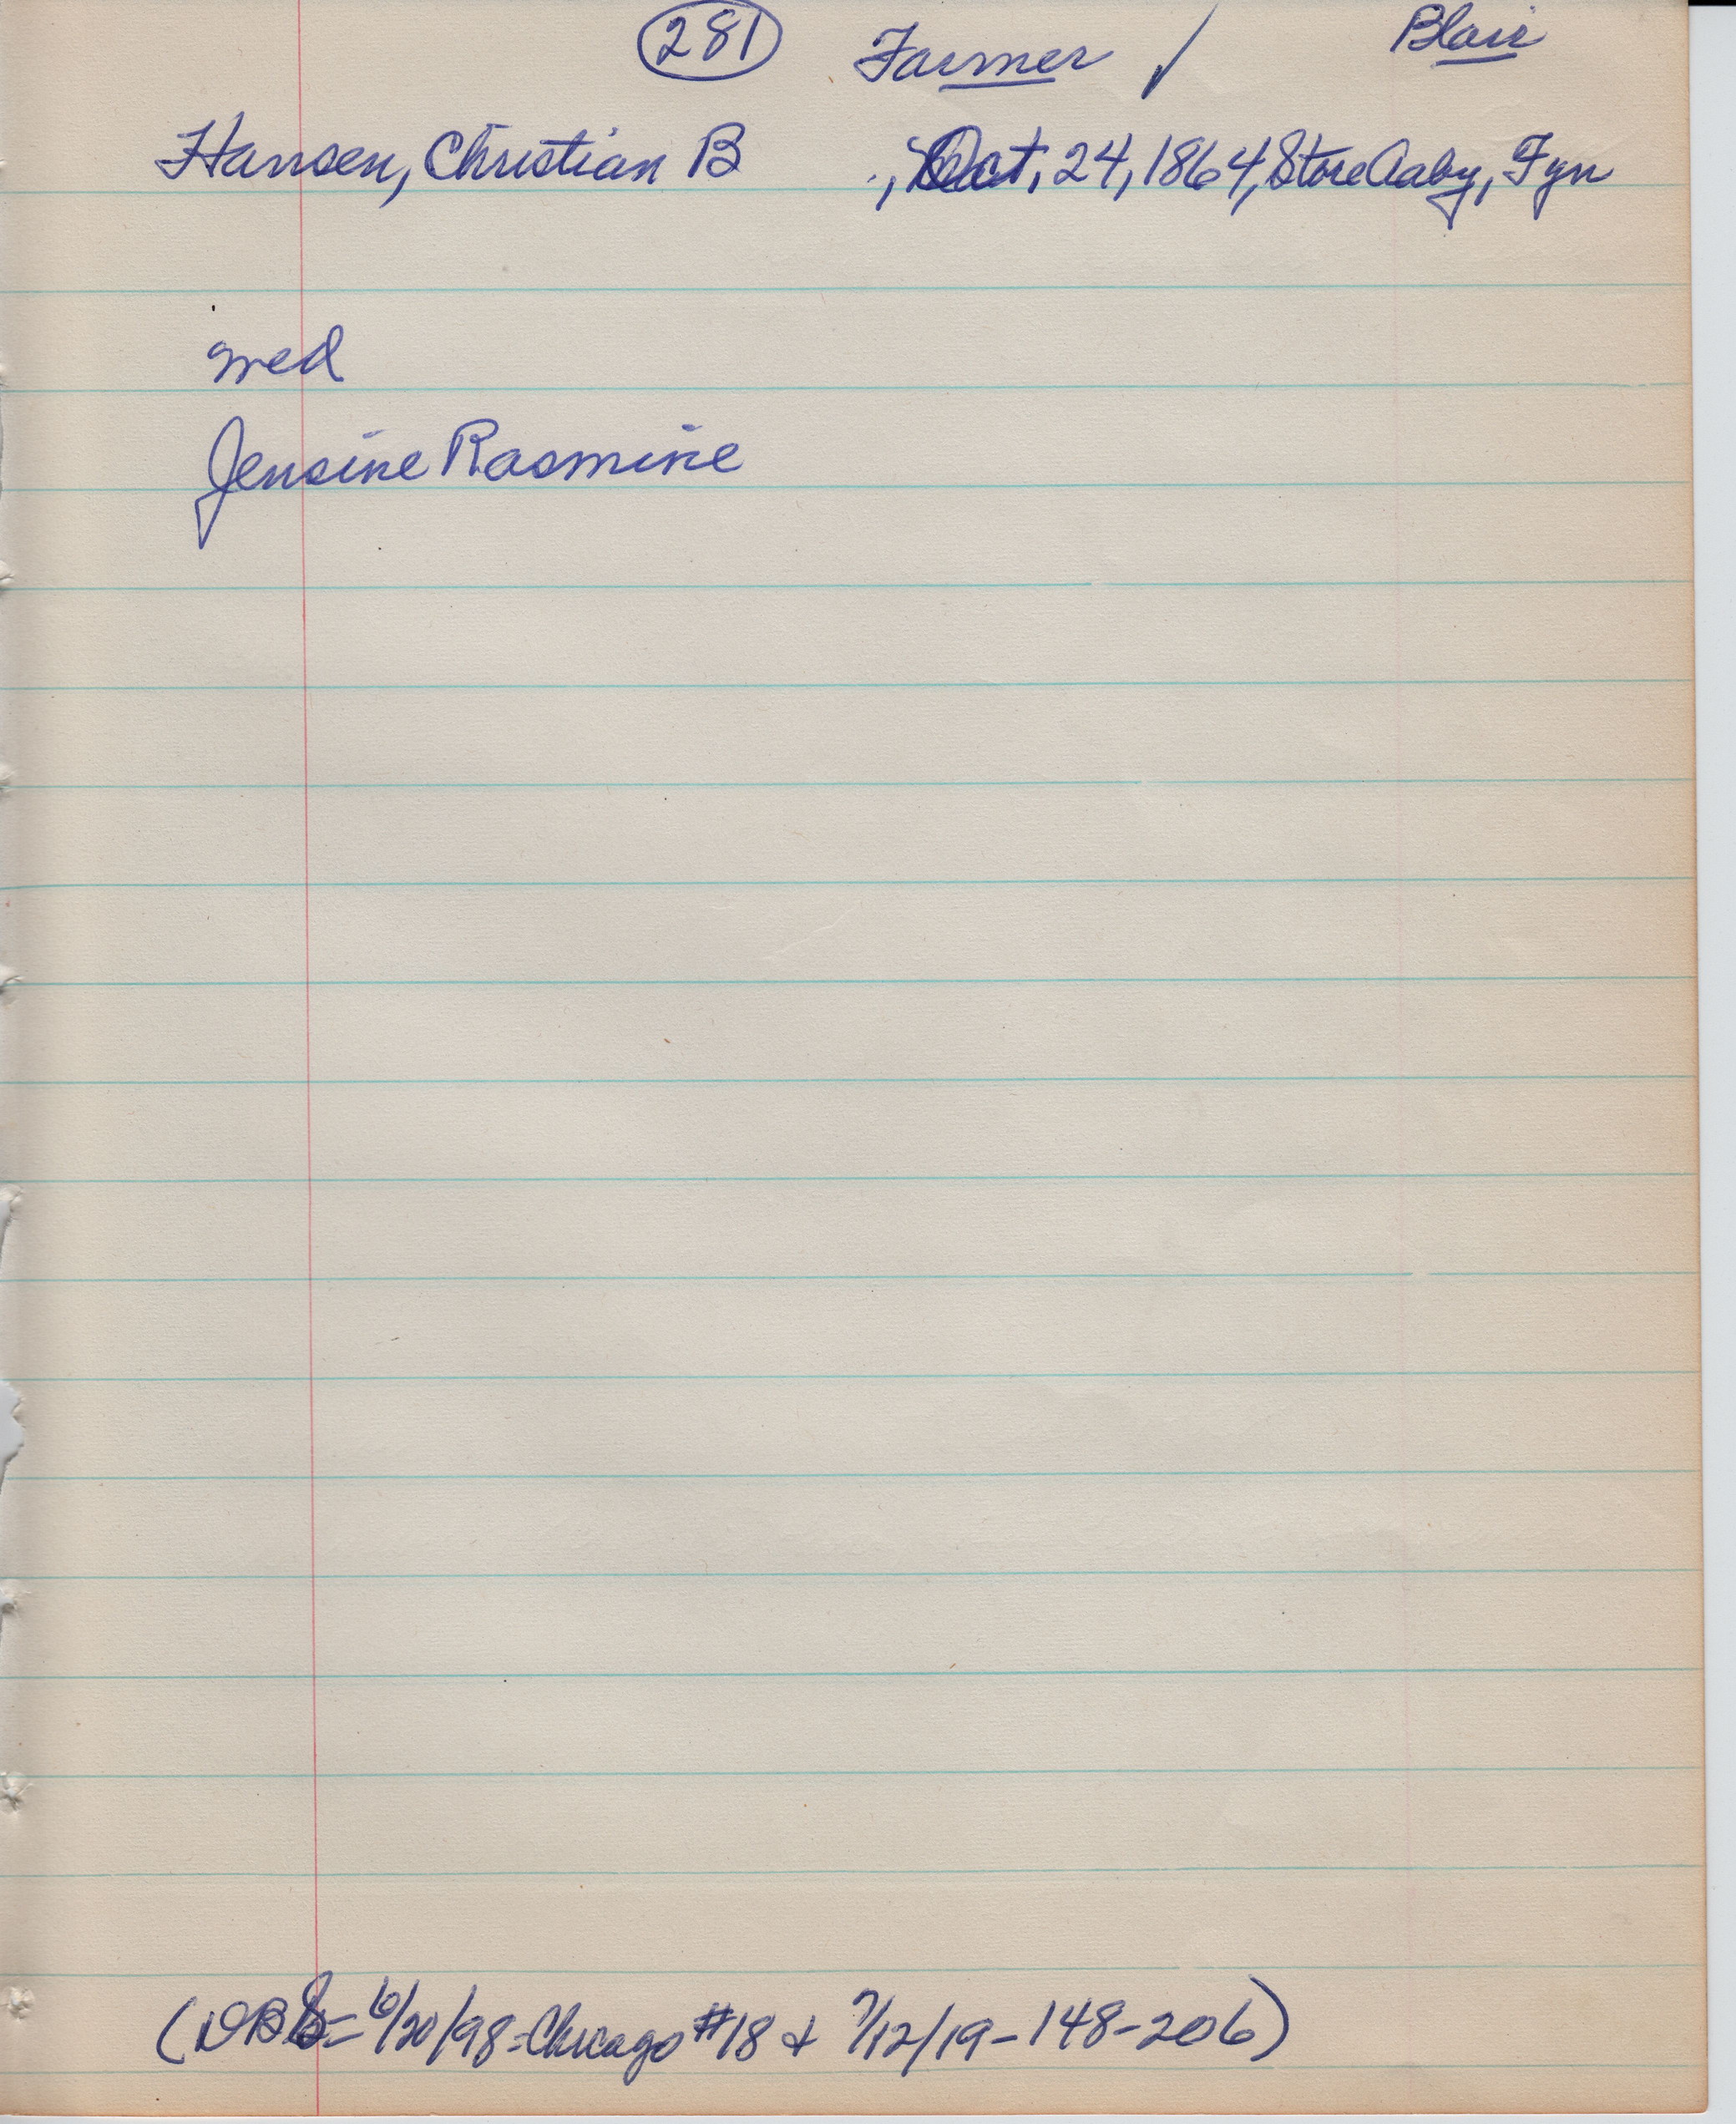 281 Farmer ✓ Blair
Hansen, Christian B ., Oct, 24, 1864, Store Aaby, Fyn
med
Jensine Rasmine
(DBS=6/20/98-Chicago #18 & 7/12/19-148-206)